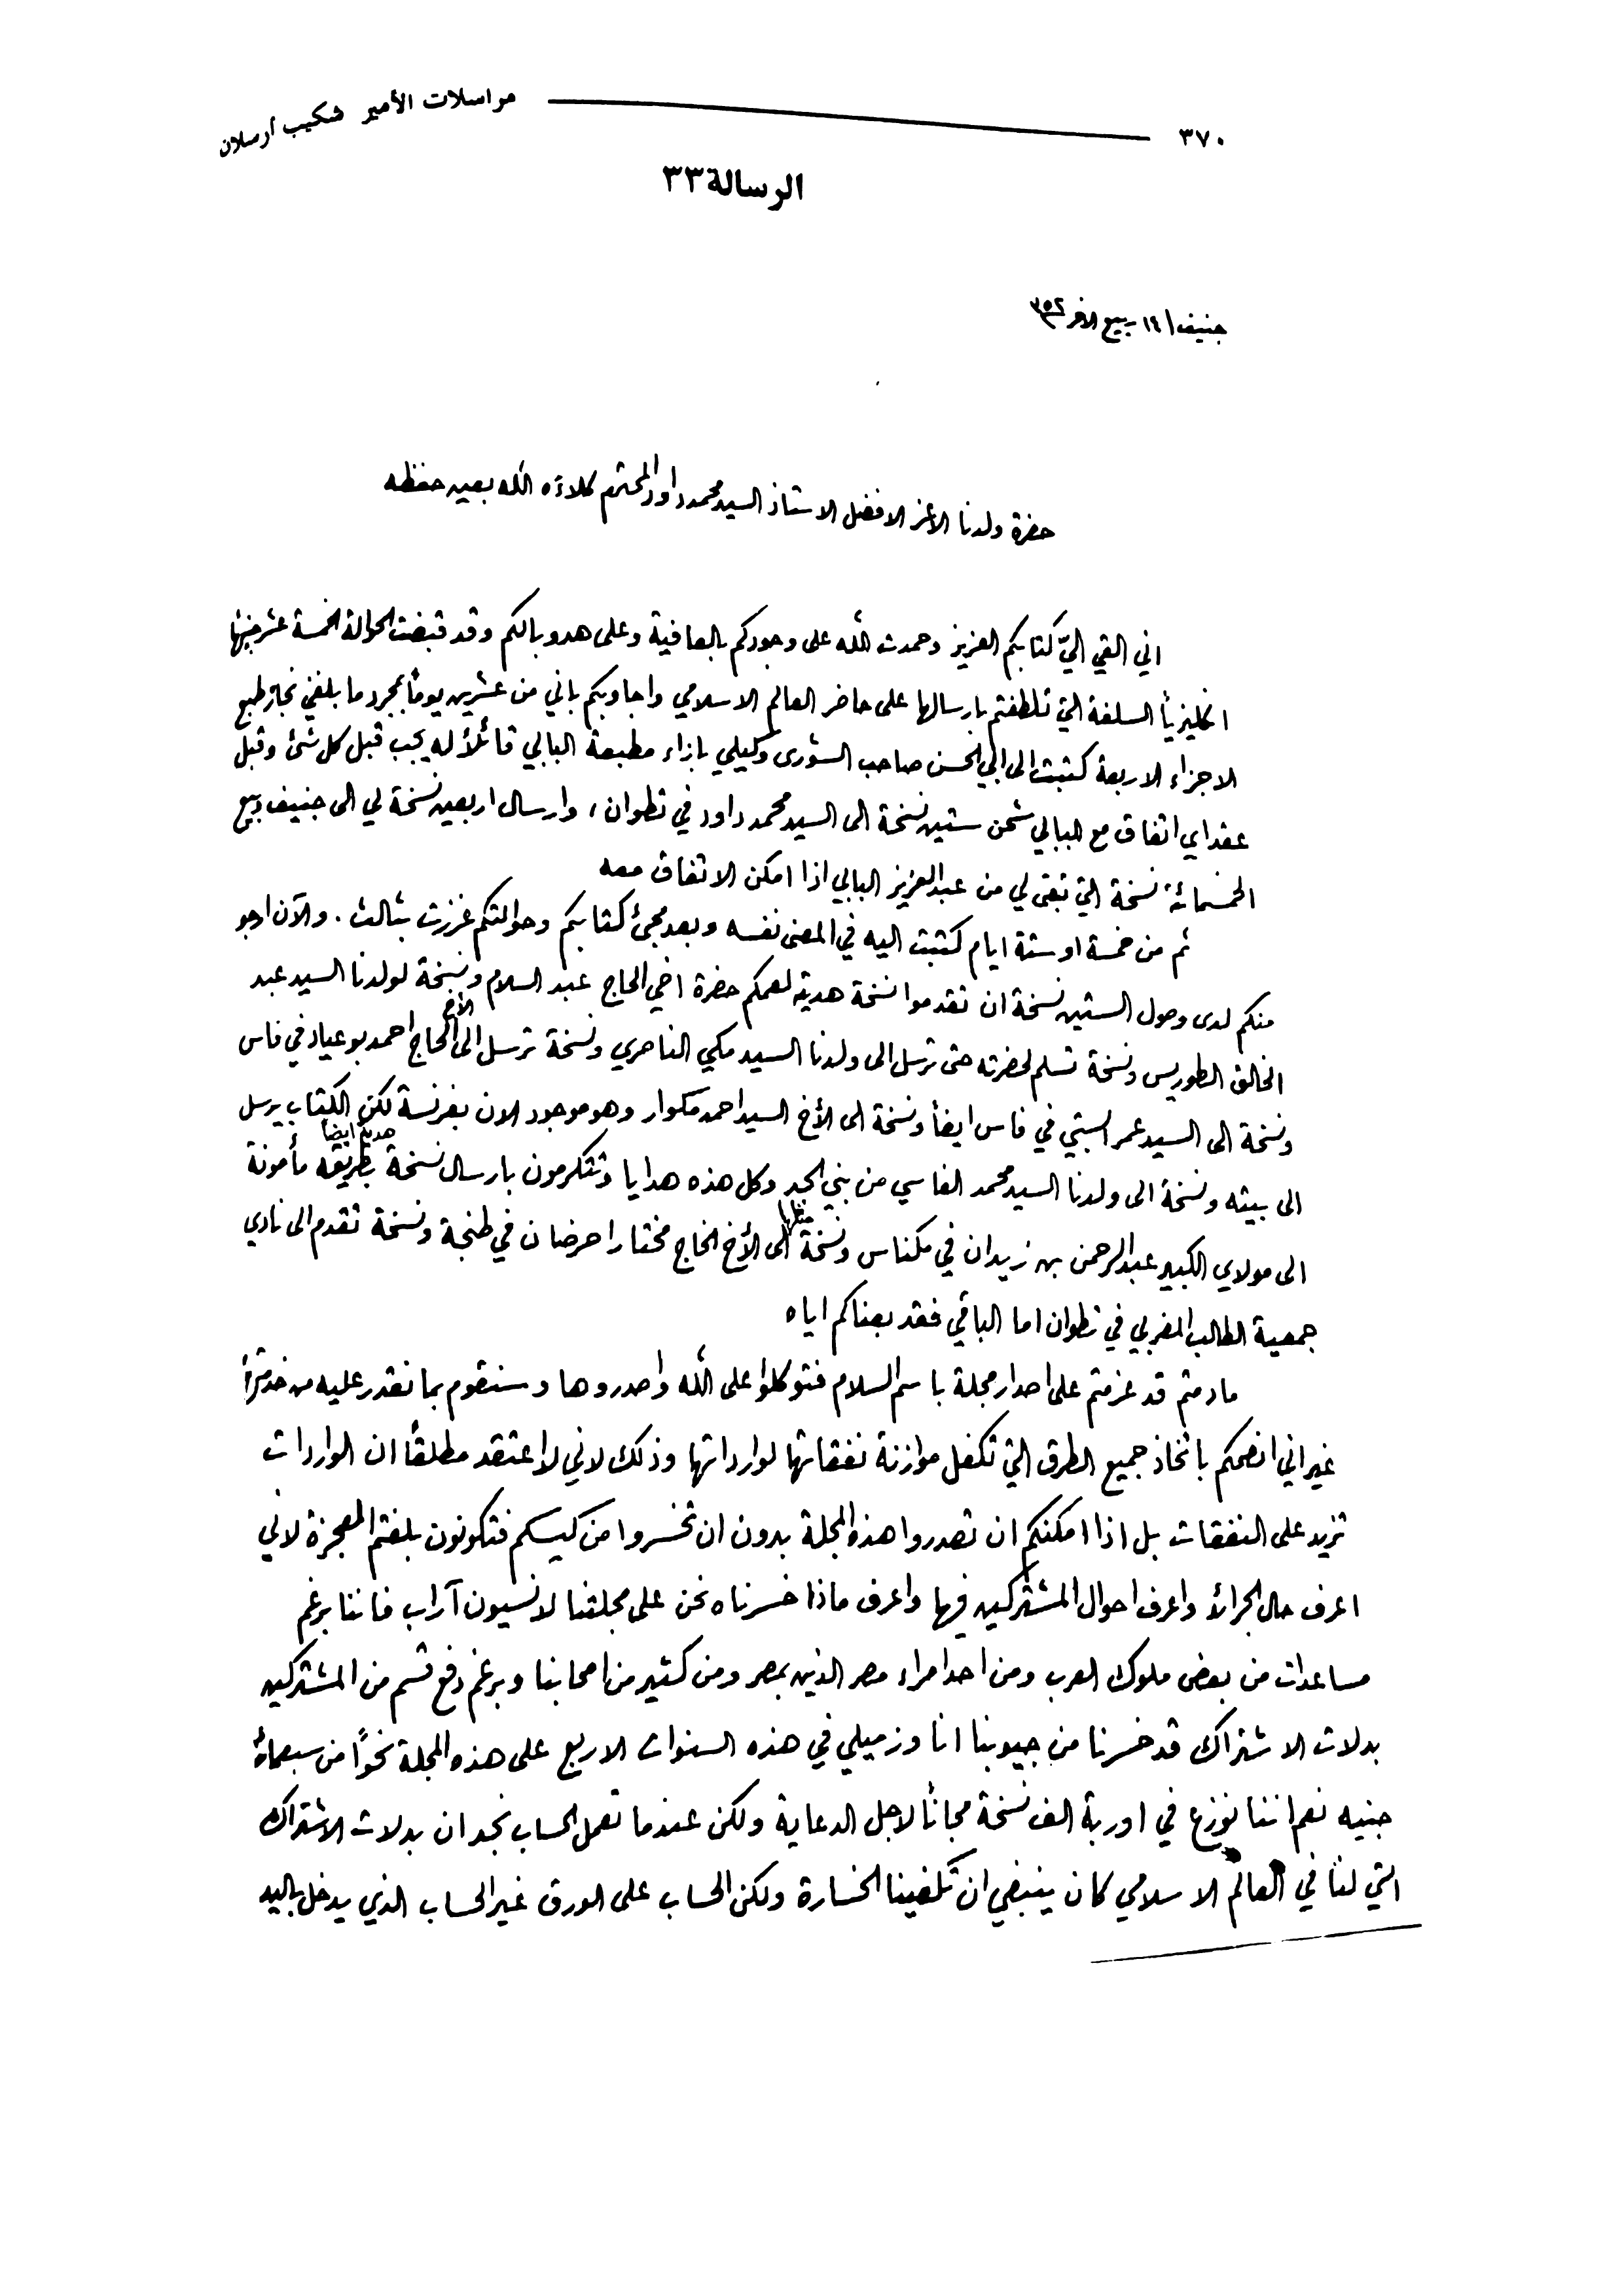 ٣٧٠
مراسلات الأمير شكيب أرسلان
الرسالة ٣٣
جنيف ١٤ ربيع الاخر ٣٥٢
حضرة ولدنا الاعز الافضل الاستاذ السيد محمد داود المحترم كلاءه الله بعين حفظه
اني القي اليّ كتابكم العزيز وحمدت الله على وجودكم بالعافية وعلى هدو بالكم وقد قبضت الحوالة الخمسة عشر جنيها
انكليزياً السلفة التي تلطفتم بارسالها على حاضر العالم الاسلامي واجاوبكم باني من عشرين يوماً بمجرد ما بلغني نجاز طبع
الاجزاء الاربعة كتبت الى ابي الحسن صاحب الشورى وكيلي بازاء مطبعة البابي قائلاً له يجب قبل كل شئ وقبل
عقد اي اتفاق مع البابي شحن ستين نسخة الى السيد محمد داود في تطوان، وارسال اربعين نسخة لي الى جنيف وبيع
الخمسمائة نسخة التي تبقى لي من عبد العزيز البابي اذا امكن الاتفاق معه
ثم من خمسة او ستة ايام كتبت اليه في المعنى نفسه وبعد مجئ كتابكم وحوالتكم عززت بثالث. والآن ارجو
منكم لدى وصول الستين نسخة ان تقدموا نسخة هدية لعمكم حضرة اخي الحاج عبد السلام ونسخة لولدنا السيد عبد
الخالق الطوريس ونسخة تسلم لحضرته حتى ترسل الى ولدنا السيد مكي الناصري ونسخة ترسل الى الأخ الحاج احمد بو عياد في فاس
ونسخة الى السيد عمر السبتي في فاس ايضاً ونسخة الى الأخ السيد احمد مكوار وهو موجود الان بفرنسة لكن الكتاب يرسل
الى بيته ونسخة الى ولدنا السيد محمد الفاسي من بني الجد وكل هذه هدايا وتتكرمون بارسال نسخة هدية ايضاً بطريقه مأمونة
الى مولاي الكبير عبد الرحمن بن زيدان في مكناس ونسخة مثلها الى الأخ الحاج مختار احرضان في طنجة ونسخة تقدم الى نادي
جمعية الطالب المغربي في تطوان اما الباقي فقد بعناكم اياه
مادمتم قد عزمتم على اصدار مجلة باسم السلام فتوكلوا على الله واصدروها وسنقوم بما نقدر عليه من خدمتها
غير اني انصحكم باتخاذ جميع الطرق التي تكفل موازنة نفقاتها لوارداتها وذلك لاني لا اعتقد مطلقاً ان الواردات
تزيد على النفقات بل اذا امكنكم ان تصدروا هذه المجلة بدون ان تخسروا من كيسكم فتكونون بلغتم المعجزة لاني
اعرف حال الجرائد واعرف احوال المشتركين فيها واعرف ماذا خسرناه نحن على مجلتنا لاناسيون آراب فاننا برغم
مساعدات من بعض ملوك العرب ومن احد امراء مصر الذين بمصر ومن كثير من اصحابنا وبرغم دفع قسم من المشتركين
بدلات الاشتراك قد خسرنا من جيوبنا انا وزميلي في هذه السنوات الاربع على هذه المجلة نحوًا من سبعمائة
جنيه نعم اننا نوزع في اوربة الف نسخة مجاناً لاجل الدعاية ولكن عندما تعمل الحساب نجد ان بدلات الاشتراك
التي لنا في العالم الاسلامي كان ينبغي ان تكفينا الخسارة ولكن الحساب على الورق غير الحساب الذي يدخل باليد